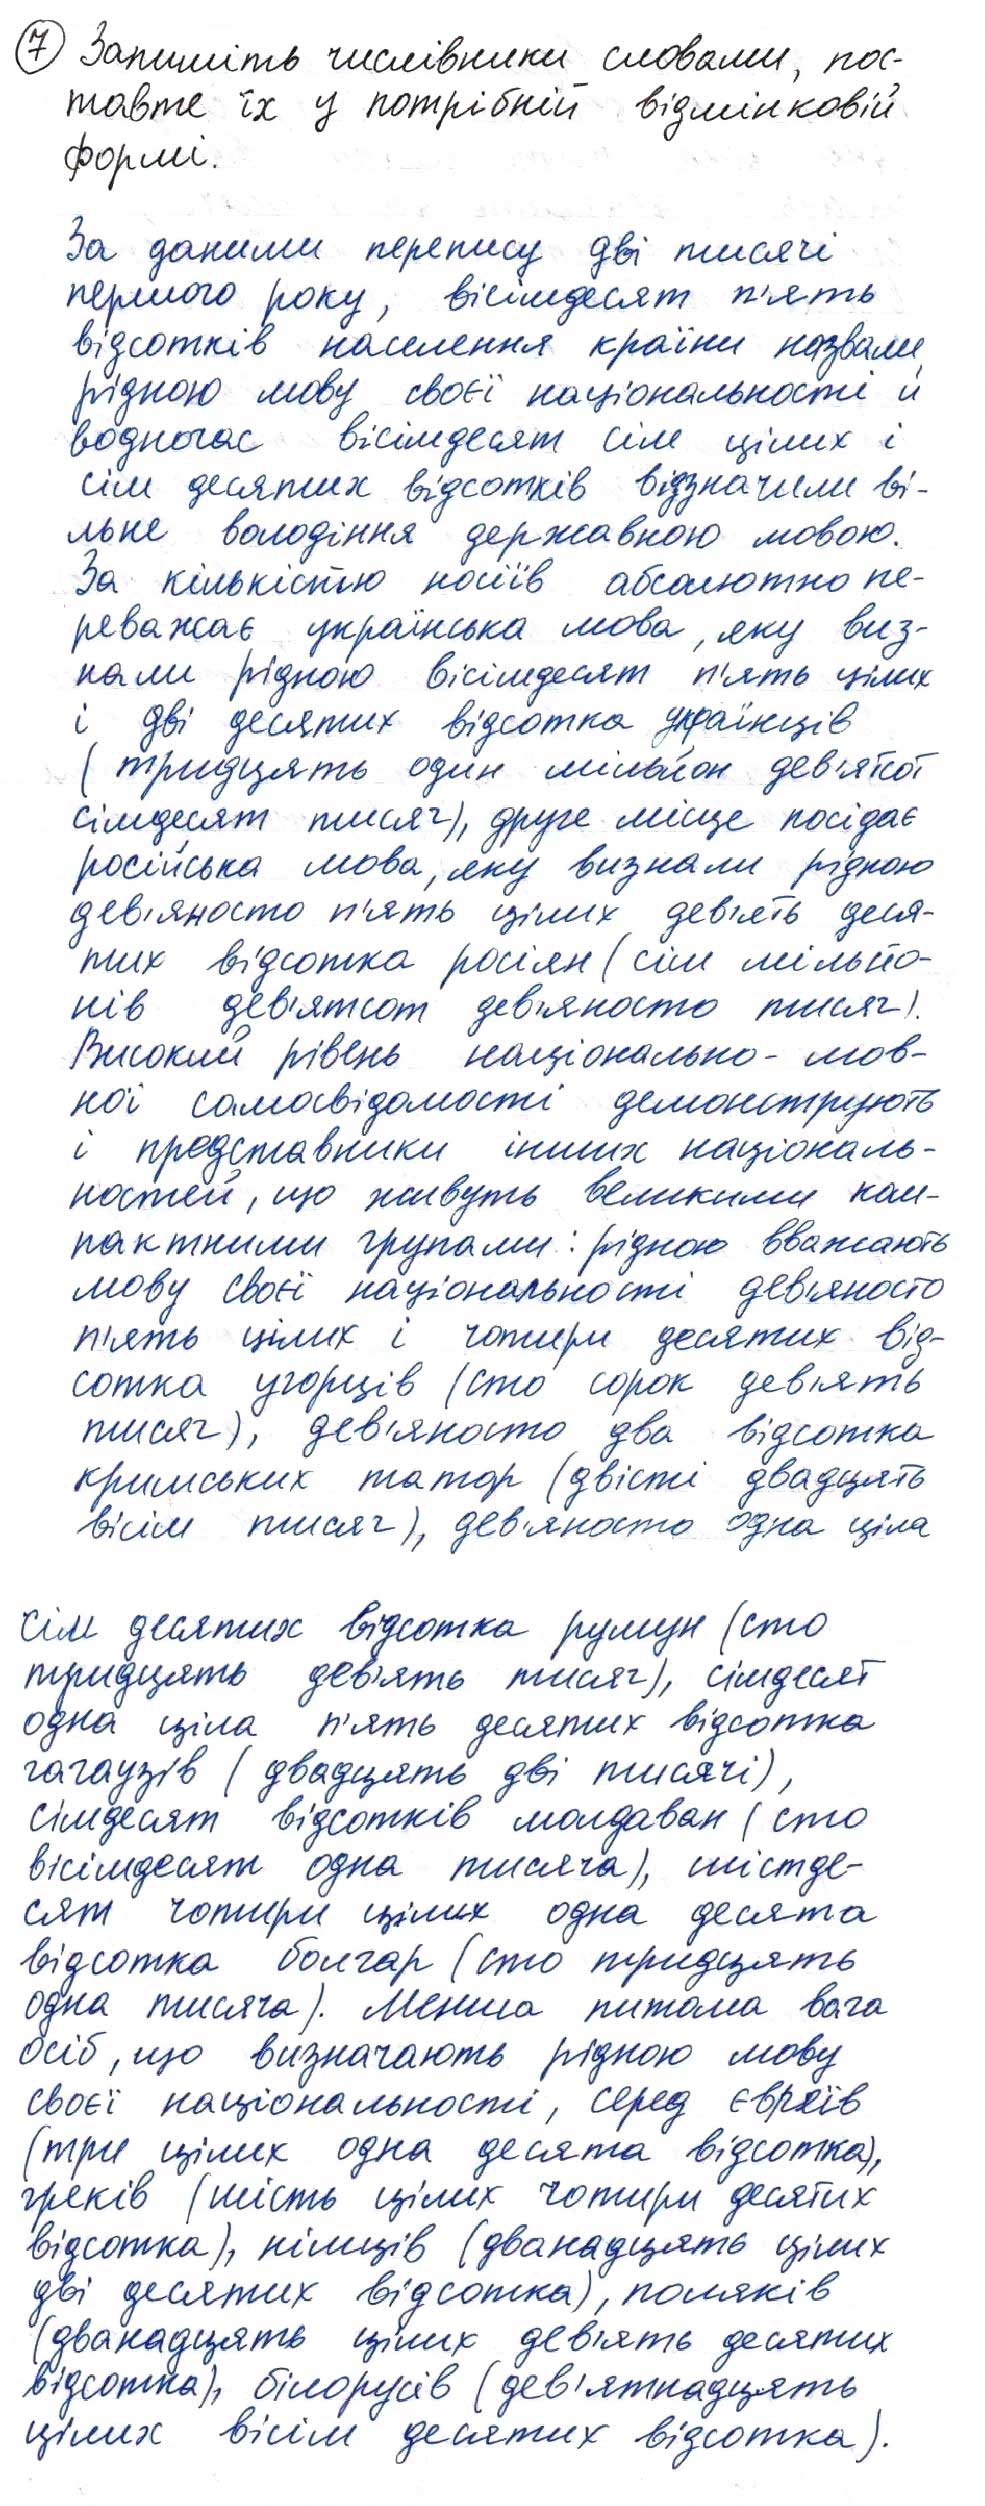 7 Запишіть числівники словами, пос-
тавте їх у потрібній відмінковій
формі.
За даними перепису дві тисячі
першого року, вісімдесят п'ять
відсотків населення країни назвали
рідною мову своєї національності й
водночас вісімдесят сім цілих і
сім десятих відсотків відзначили ві-
льне володіння державною мовою.
За кількістю носіїв абсолютно пе-
реважає українська мова, яку виз-
нали рідною вісімдесят п'ять цілих
і дві десятих відсотка українців
(тридцять один мільйон дев'ятсот
сімдесят тисяч), друге місце посідає
російська мова, яку визнали рідною
дев'яносто п'ять цілих дев'ять деся-
тих відсотка росіян (сім мільйо-
нів дев'ятсот дев'яносто тисяч).
Високий рівень національно-мов-
ної самосвідомості демонструють
і представники інших національ-
ностей, що живуть великими ком-
пактними групами: рідною вважають
мову своєї національності дев'яносто
п'ять цілих і чотири десятих від-
сотка угорців (сто сорок дев'ять
тисяч), дев'яносто два відсотка
кримських татар (двісті двадцять
вісім тисяч), дев'яносто одна ціла
сім десятих відсотка румун (сто
тридцять дев'ять тисяч), сімдесят
одна ціла п'ять десятих відсотка
гагаузів (двадцять дві тисячі),
сімдесят відсотків молдаван (сто
вісімдесят одна тисяча), шістде-
сят чотири цілих одна десята
відсотка болгар (сто тридцять
одна тисяча). Менша питома вага
осіб, що визначають рідною мову
своєї національності, серед євреїв
(три цілих одна десята відсотка),
греків (шість цілих чотири десятих
відсотка), німців (дванадцять цілих
дві десятих відсотка), поляків
(дванадцять цілих дев'ять десятих
відсотка), білорусів (дев'ятнадцять
цілих вісім десятих відсотка).